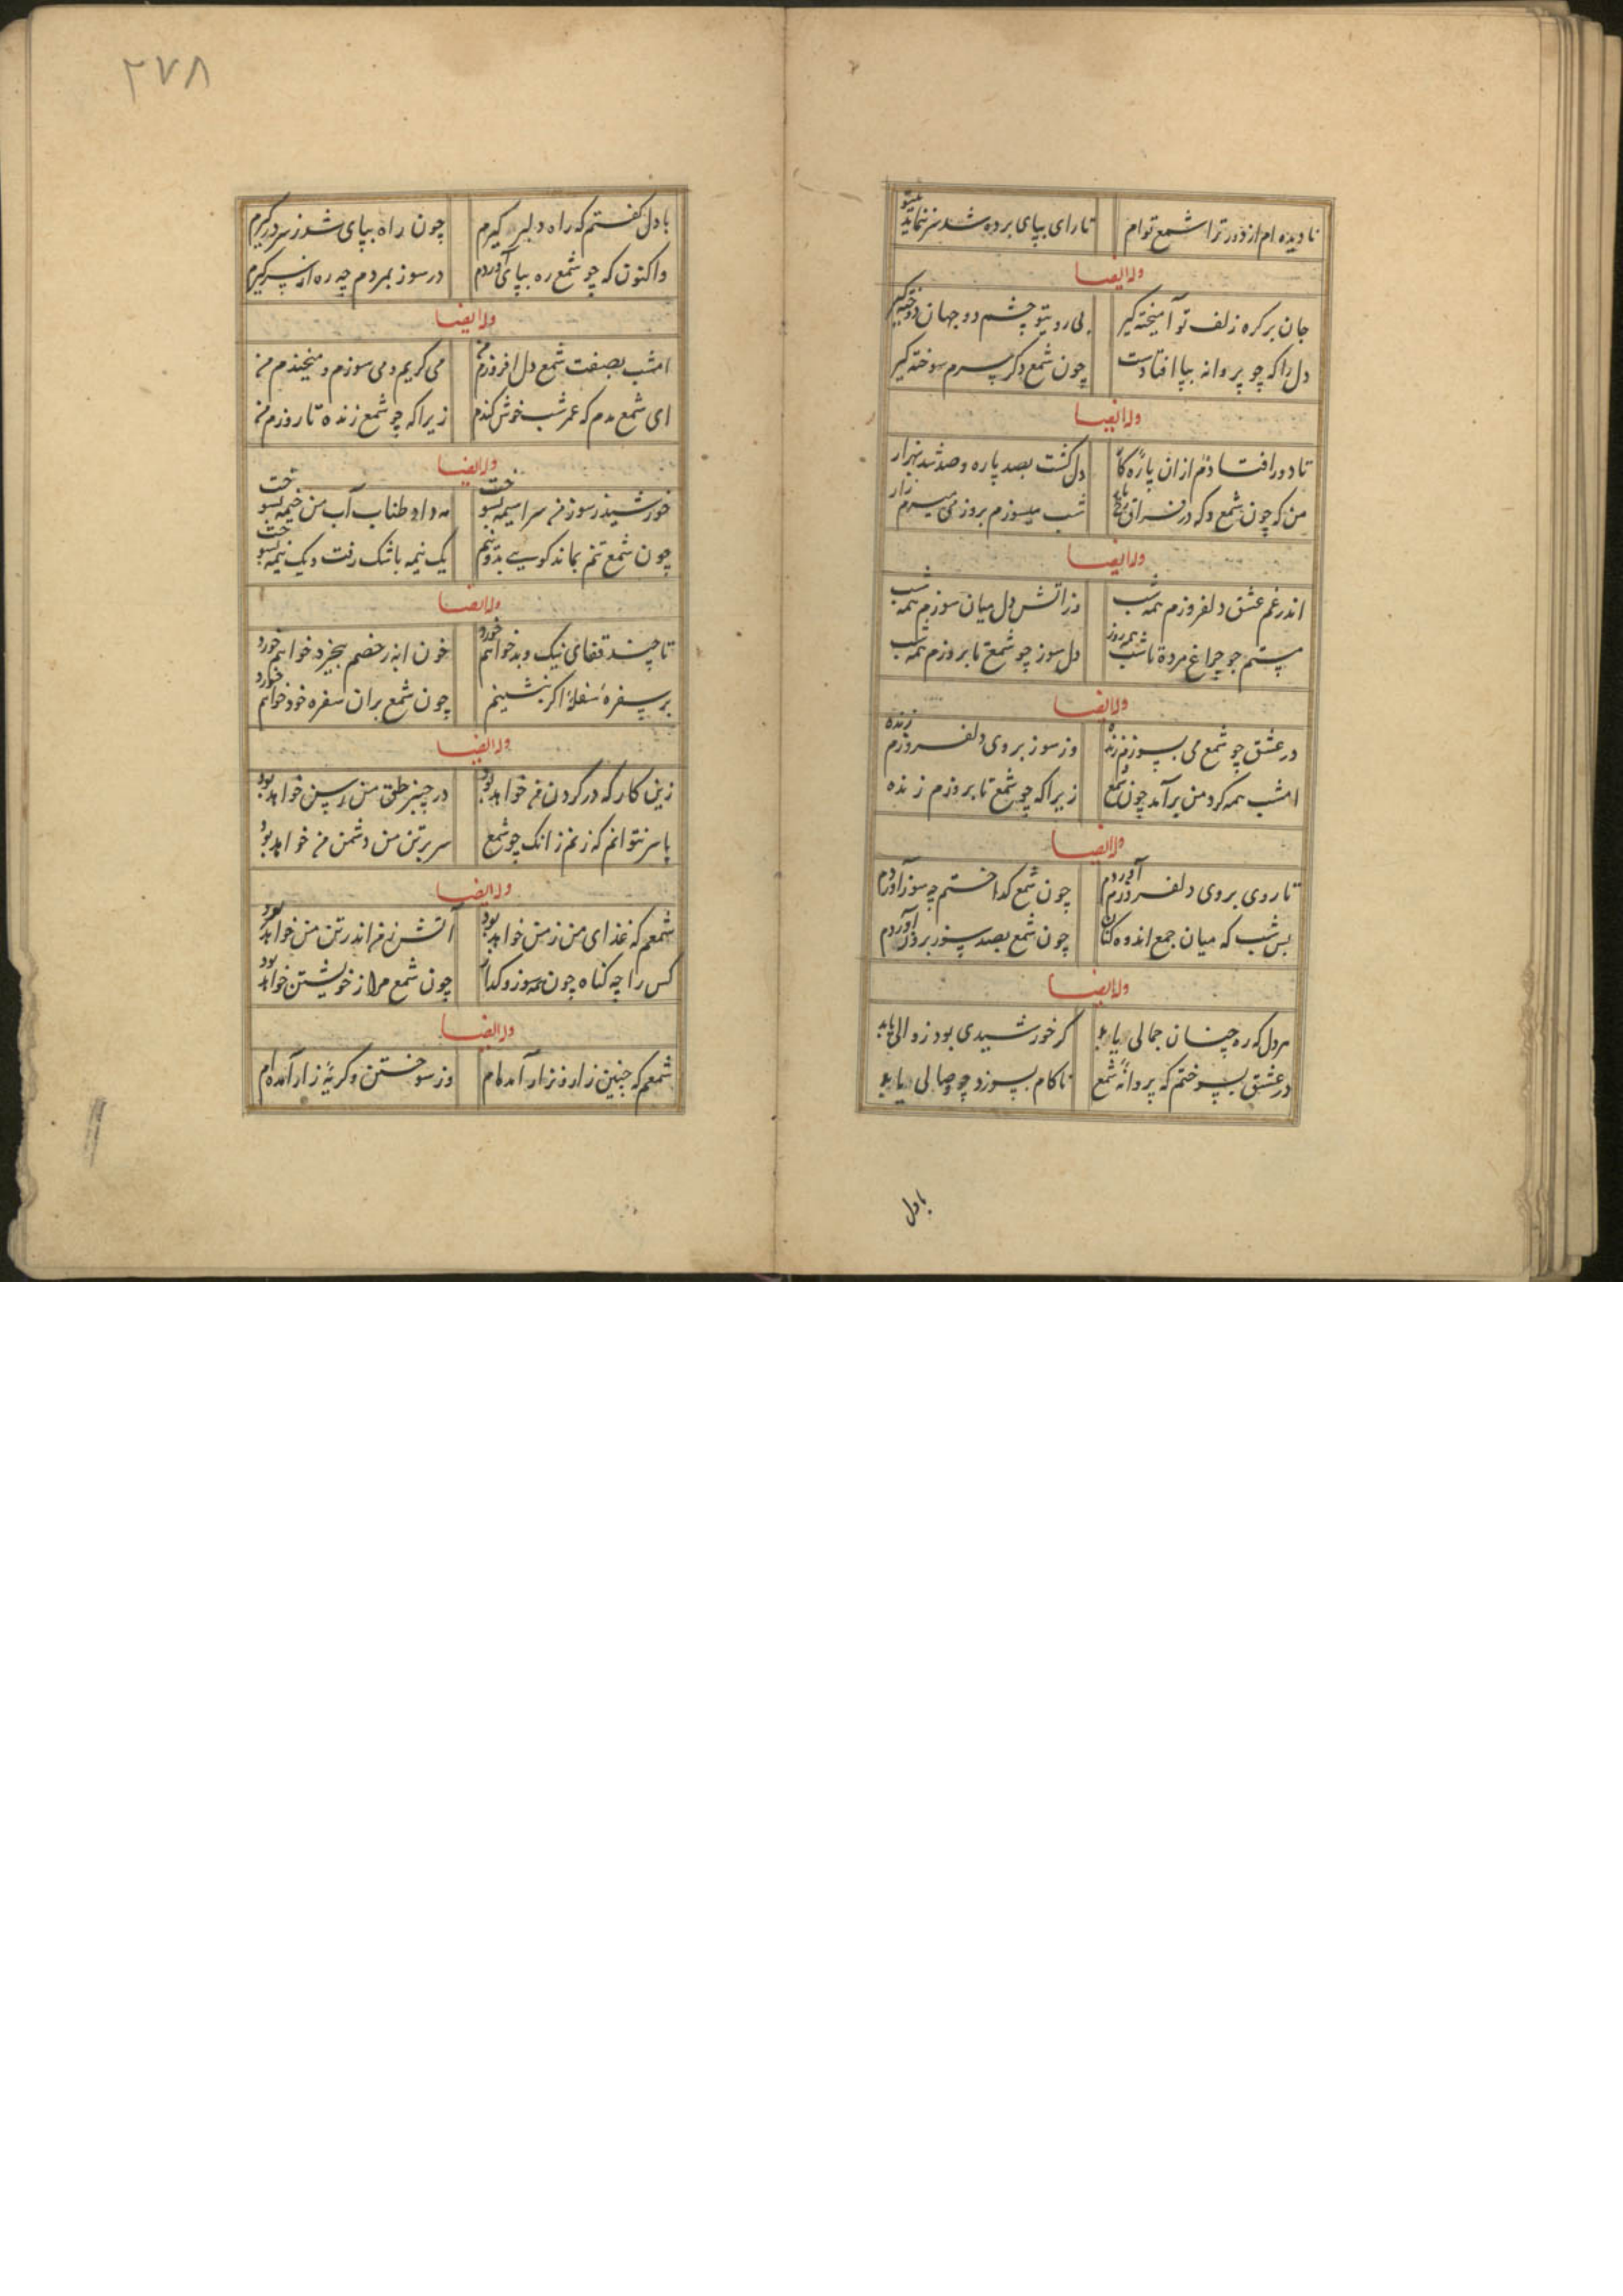 نادیده‌ام از دور ترا شمع توام تا رای بپای برده شد سر ننماید
وله ایضا
جان بر کره زلف تو آمیخته کیر بی رویتو چشم دو جهان دوخته کیر
دل را که چو پروانه بپا افتادست چون شمع دکر سرم سوخته کیر
وله ایضا
تا دور افتاده‌ام از ان پاره کار دل کشت بصد پاره و صد شد بهزار
من که چون شمع و که در فراق شب میسوزم بروز می میرم زار
وله ایضا
اندر غم عشق دلفروزم همه شب وز اتش دل میان سوزم همه شب
هستم چو چراغ مرده تا شب همه روز دل سوز چو شمع تا بروزم همه شب
وله ایضا
در عشق چو شمع می بسوزم زنده وز سوز بروی دلفروزم زنده
امشب همه کرد من برآمد چون شمع زیرا که چو شمع تا بروزم زنده
وله ایضا
تا روی بروی دلفروزم آوردم چون شمع کداختم چه سوز آوردم
بس شب که میان جمع اندوه کنان چون شمع بصد سوز بروز آوردم
وله ایضا
هر دل که ره چنان جمالی یابد کر خورشیدی بود زوالی یابد
در عشق بسوختم که پروانهٔ شمع ناکام بسوزد چو وصالی یابد
بادل
۲۷۸
با دل کفتم که راه دلبر کیرم چون راه بپای شد ز سر درکیرم
واکنون که چو شمع ره بپای آوردم در سوز بمردم چه ره از سر کیرم
وله ایضا
امشب بصفت شمع دل افروزم من می کریم و می سوزم و میخندم من
ای شمع مدم که عمر شب خوش کندم زیرا که چو شمع زنده تا روزم من
وله ایضا
خورشید ز سوز من سراسیمه بسوخت مه داد طناب آب من خیمه بسوخت
چون شمع تنم بماند کویی بدو نیم یک نیمه باشک رفت و یک نیمه بسوخت
وله ایضا
تا چند قفای نیک و بد خواهم خورد خون ابه ز خصم بیخرد خواهم خورد
بر سفرهٔ سفلهٔ اکر بنشینم چون شمع بران سفره خود خواهم خورد
وله ایضا
زین کار که در کردن من خواهد بود در چنبر حلق من رسن خواهد بود
پا سر نتوانم که زنم زانک چو شمع سر بر تن من دشمن من خواهد بود
وله ایضا
شمعم که غذای من ز من خواهد بود آتش ز من اندر تن من خواهد بود
کس را چه کناه چون همه سوز و کداز چون شمع مرا ز خویشتن خواهد بود
وله ایضا
شمعم که چنین زار و نزار آمده‌ام وز سوختن و کریهٔ زار آمده‌ام